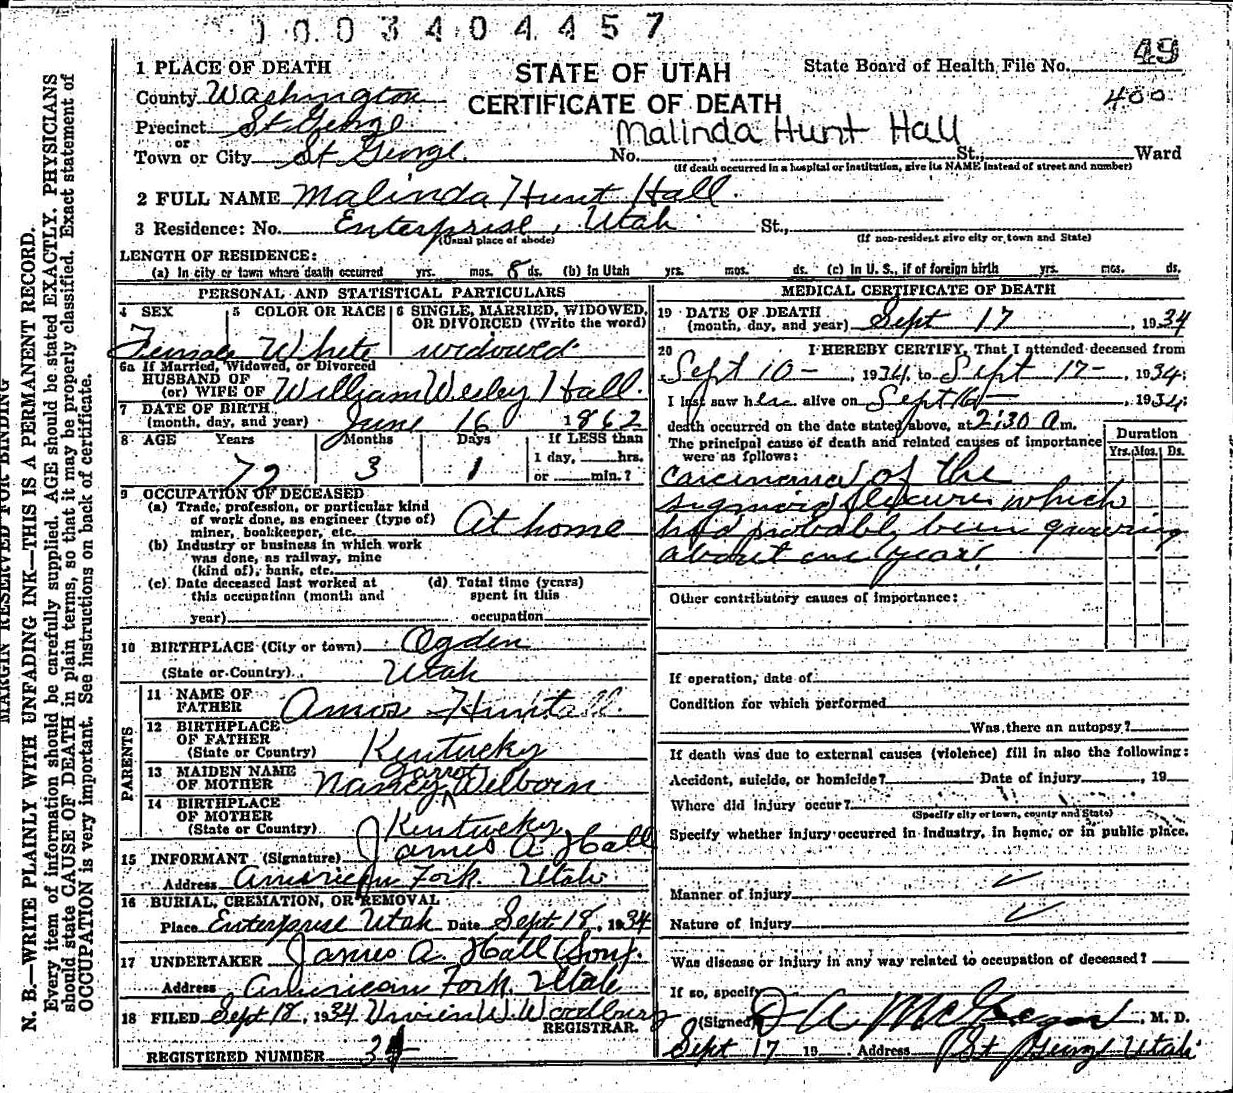 1003404457
1 PLACE OF DEATH
STATE OF UTAH
State Board of Health File No. 49
County Washington
CERTIFICATE OF DEATH
400
Precinct St George
Malinda Hunt Hall
or
Town or City St George. No. St., Ward
(If death occurred in a hospital or institution, give its NAME instead of street and number)
2 FULL NAME Malinda Hunt Hall.
3 Residence: No. Enterprise, Utah St.,
(Usual place of abode) (If non-resident give city or town and State)
LENGTH OF RESIDENCE:
(a) In city or town where death occurred yrs. mos. 8 ds. (b) In Utah yrs. mos. ds. (c) In U. S., if of foreign birth yrs. mos. ds.
PERSONAL AND STATISTICAL PARTICULARS
4 SEX 5 COLOR OR RACE 6 SINGLE, MARRIED, WIDOWED, OR DIVORCED (Write the word)
Female White widowed
6a If Married, Widowed, or Divorced
HUSBAND OF
(or) WIFE OF William Wesley Hall.
7 DATE OF BIRTH
(month, day, and year) June 16 1862
8 AGE Years Months Days If LESS than
1 day, hrs.
72 3 1 or min.?
9 OCCUPATION OF DECEASED
(a) Trade, profession, or particular kind
of work done, as engineer (type of)
miner, bookkeeper, etc. At home
(b) Industry or business in which work
was done, as railway, mine
(kind of), bank, etc.
(c) Date deceased last worked at (d) Total time (years)
this occupation (month and spent in this
year) occupation
10 BIRTHPLACE (City or town) Ogden
(State or Country) Utah
PARENTS
11 NAME OF
FATHER Amos Hunt
12 BIRTHPLACE
OF FATHER
(State or Country) Kentucky
13 MAIDEN NAME
OF MOTHER Nancy Welborn
14 BIRTHPLACE
OF MOTHER
(State or Country) Kentucky
15 INFORMANT (Signature) James A. Hall
Address American Fork. Utah.
16 BURIAL, CREMATION, OR REMOVAL
Place Enterprise Utah Date Sept 18, 1934
17 UNDERTAKER James A. Hall (Son).
Address American Fork. Utah
18 FILED Sept 18, 1934 Vivien W. Woodbury
REGISTRAR.
REGISTERED NUMBER 34
MEDICAL CERTIFICATE OF DEATH
19 DATE OF DEATH
(month, day, and year) Sept 17, 1934
20 I HEREBY CERTIFY, That I attended deceased from
Sept 10-, 1934, to Sept 17-, 1934;
I last saw her alive on Sept 16-, 1934;
death occurred on the date stated above, at 2:30 a.m.
The principal cause of death and related causes of importance
were as follows:
Duration
Yrs. Mos. Ds.
carcinoma of the
sigmoid flexure which
had probably been growing
about one year.
Other contributory causes of importance:
If operation, date of
Condition for which performed
Was there an autopsy?
If death was due to external causes (violence) fill in also the following:
Accident, suicide, or homicide? Date of injury, 19
Where did injury occur?
(Specify city or town, county and State)
Specify whether injury occurred in industry, in home, or in public place.
Manner of injury
Nature of injury
Was disease or injury in any way related to occupation of deceased?
If so, specify
(Signed) D A McGregor, M. D.
Sept 17 19 Address St George Utah
MARGIN RESERVED FOR BINDING
N. B.—WRITE PLAINLY WITH UNFADING INK—THIS IS A PERMANENT RECORD.
Every item of information should be carefully supplied. AGE should be stated EXACTLY. PHYSICIANS
should state CAUSE OF DEATH in plain terms, so that it may be properly classified. Exact statement of
OCCUPATION is very important. See instructions on back of certificate.